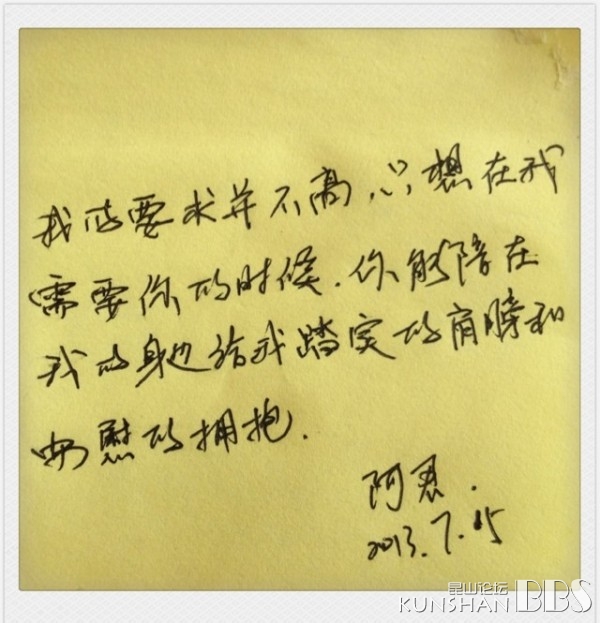 我的要求并不高，只想在我
需要你的时候．你能陪在
我的身边给我踏实的肩膀和
安慰的拥抱．
阿君．
2013.7.15
昆山论坛
KUNSHAN BBS